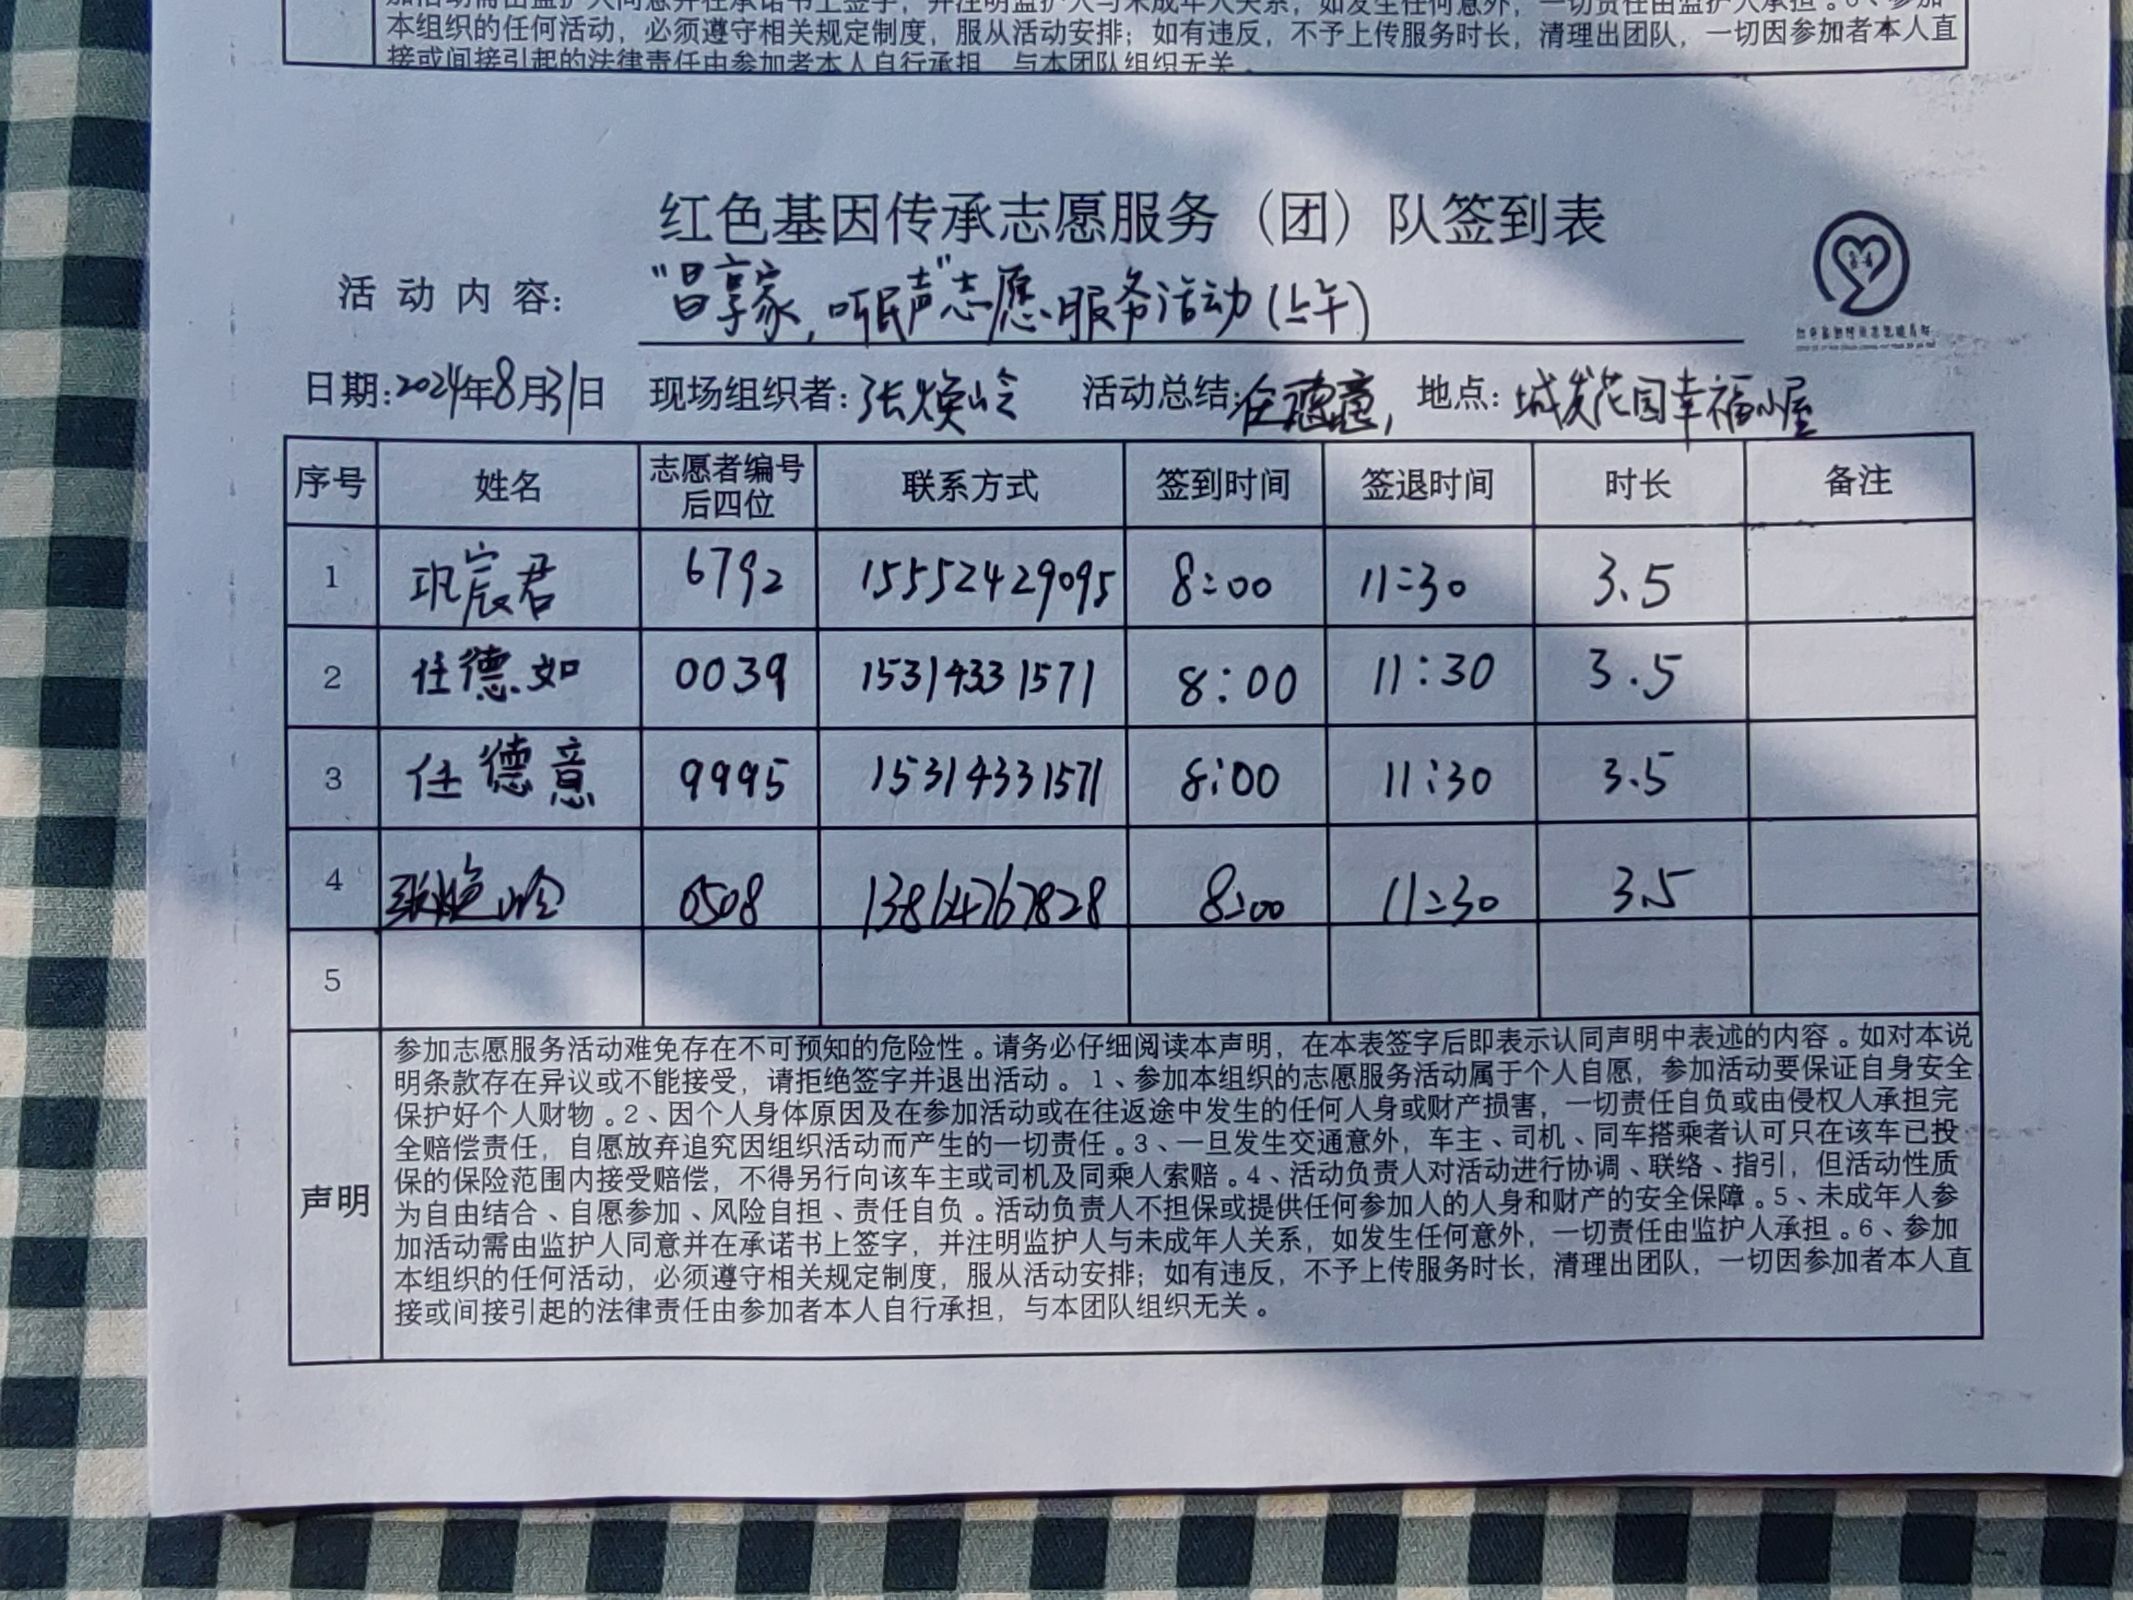 加活动需由监护人同意并在承诺书上签字，并注明监护人与未成年人关系，如发生任何意外，一切责任由监护人承担。6、参加
本组织的任何活动，必须遵守相关规定制度，服从活动安排；如有违反，不予上传服务时长，清理出团队，一切因参加者本人直
接或间接引起的法律责任由参加者本人自行承担，与本团队组织无关。
红色基因传承志愿服务（团）队签到表
活动内容：“昌享家，听民声”志愿服务活动（上午）
日期：2024年8月31日 现场组织者：张焕岭 活动总结：任德意， 地点：城发花园幸福小屋
序号 姓名 志愿者编号后四位 联系方式 签到时间 签退时间 时长 备注
1 巩宸君 6792 15552429095 8:00 11:30 3.5
2 任德如 0039 15314331571 8:00 11:30 3.5
3 任德意 9995 15314331571 8:00 11:30 3.5
4 张焕岭 0508 13864767828 8:00 11:30 3.5
5
声明
参加志愿服务活动难免存在不可预知的危险性。请务必仔细阅读本声明，在本表签字后即表示认同声明中表述的内容。如对本说
明条款存在异议或不能接受，请拒绝签字并退出活动。1、参加本组织的志愿服务活动属于个人自愿，参加活动要保证自身安全
保护好个人财物。2、因个人身体原因及在参加活动或在往返途中发生的任何人身或财产损害，一切责任自负或由侵权人承担完
全赔偿责任，自愿放弃追究因组织活动而产生的一切责任。3、一旦发生交通意外，车主、司机、同车搭乘者认可只在该车已投
保的保险范围内接受赔偿，不得另行向该车主或司机及同乘人索赔。4、活动负责人对活动进行协调、联络、指引，但活动性质
为自由结合、自愿参加、风险自担、责任自负。活动负责人不担保或提供任何参加人的人身和财产的安全保障。5、未成年人参
加活动需由监护人同意并在承诺书上签字，并注明监护人与未成年人关系，如发生任何意外，一切责任由监护人承担。6、参加
本组织的任何活动，必须遵守相关规定制度，服从活动安排；如有违反，不予上传服务时长，清理出团队，一切因参加者本人直
接或间接引起的法律责任由参加者本人自行承担，与本团队组织无关。